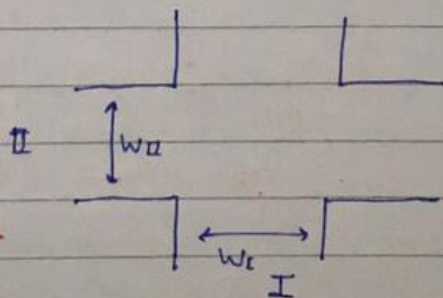 II
WII
WI
I